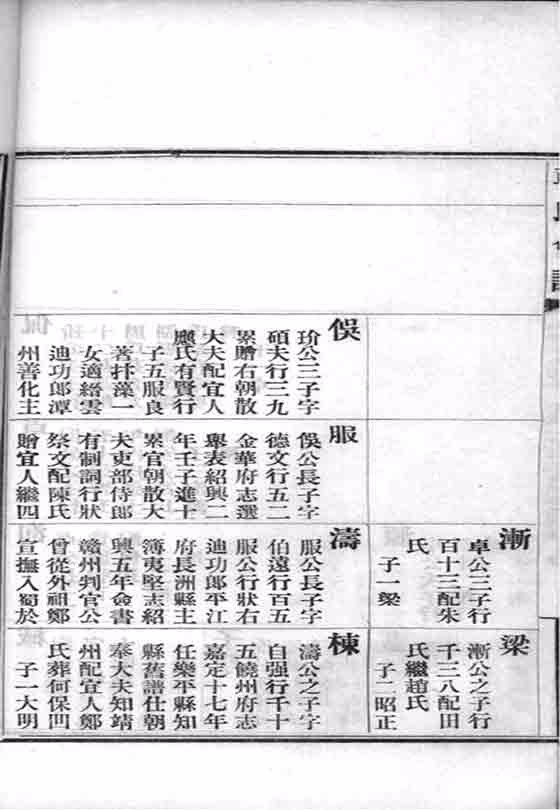 漸
卓公三子行
百十三配朱
氏
子一梁
梁
漸公之子行
千三八配田
氏繼趙氏
子二昭正
俁
玠公三子字
碩夫行三九
累贈右朝散
大夫配宜人
應氏有賢行
子五服良
著抃藻一
女適縉雲
迪功郎潭
州善化主
服
俁公長子字
德文行五二
金華府志選
舉表紹興二
年壬子進士
累官朝散大
夫吏部侍郎
有制詞行狀
祭文配陳氏
贈宜人繼四
濤
服公長子字
伯遠行百五
服公行狀右
迪功郎平江
府長洲縣主
簿夷堅志紹
興五年僉書
贛州判官公
曾從外祖鄭
宣撫入蜀於
棟
濤公之子字
自强行千十
五饒州府志
嘉定十七年
任樂平縣知
縣舊譜仕朝
奉大夫知靖
州配宜人鄭
氏葬何保凹
子一大明